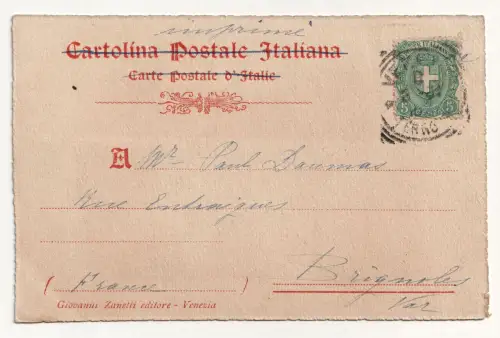 imprimé
Cartolina Postale Italiana
Carte Postale d'Italie
A Mr Paul Daumas
Rue Entraigues
Brignoles
(France)
Var
Giovanni Zanetti editore - Venezia